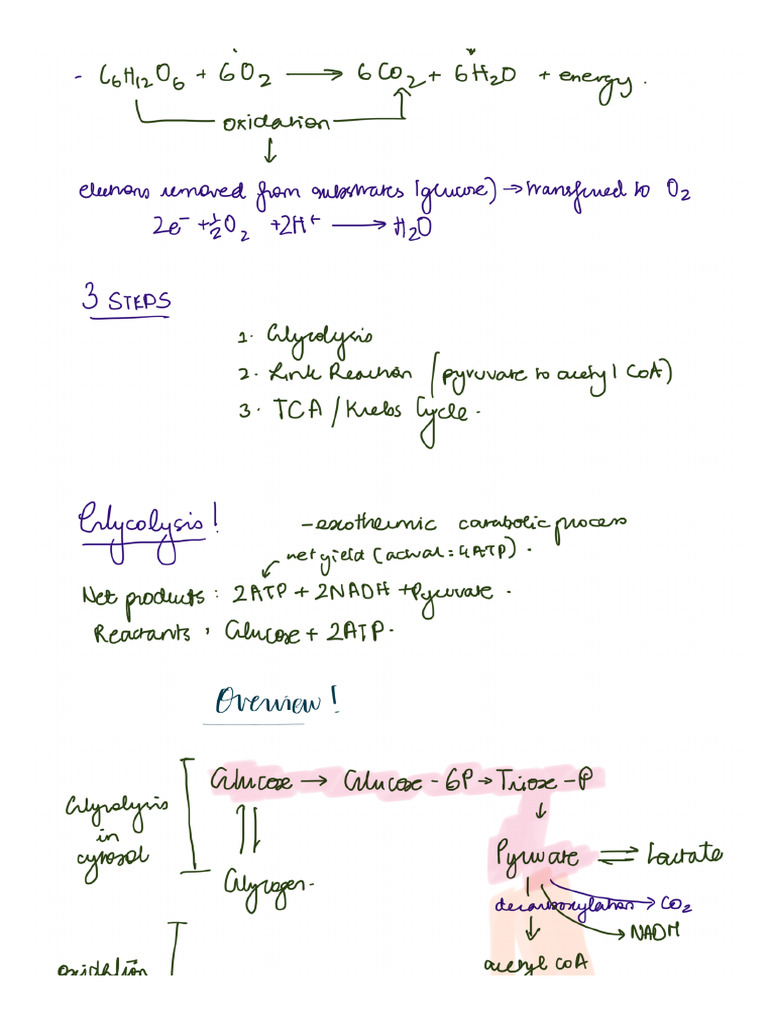 - C6H12O6 + 6O2 → 6CO2 + 6H2O + energy.
oxidation
↓
electrons removed from substrates (glucose) → transferred to O2
2e⁻ + ½O2 + 2H⁺ → H2O
3 STEPS
1. Glycolysis
2. Link Reaction (pyruvate to acetyl CoA)
3. TCA / Krebs Cycle.
Glycolysis!
- exothermic catabolic process
net yield (actual = 4ATP).
Net products: 2ATP + 2NADH + Pyruvate.
Reactants: Glucose + 2ATP.
Overview!
Glucose → Glucose - 6P → Triose - P
Glycolysis
in
cytosol
Pyruvate ⇌ Lactate
Glycogen.
decarboxylation → CO2
→ NADH
acetyl CoA
oxidation